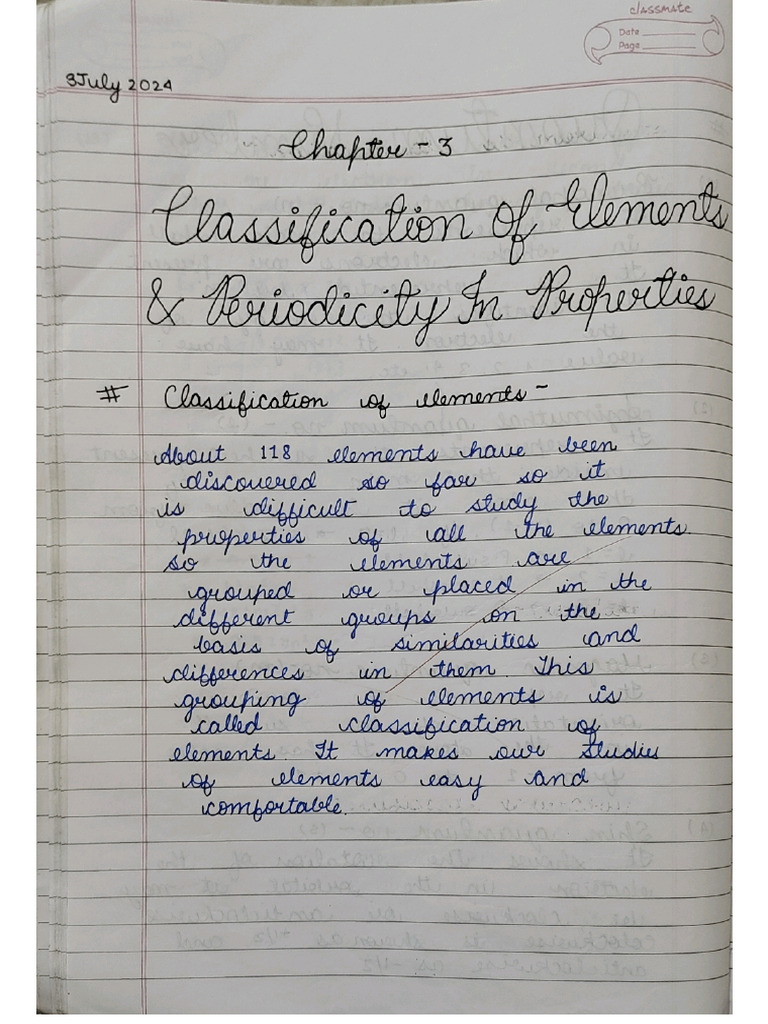 classmate
Date
Page
3 July 2024
Chapter - 3
Classification Of Elements
& Periodicity In Properties
# Classification of elements -
About 118 elements have been
discovered so far so it
is difficult to study the
properties of all the elements.
so the elements are
grouped or placed in the
different groups on the
basis of similarities and
differences in them. This
grouping of elements is
called classification of
elements. It makes our studies
of elements easy and
comfortable.